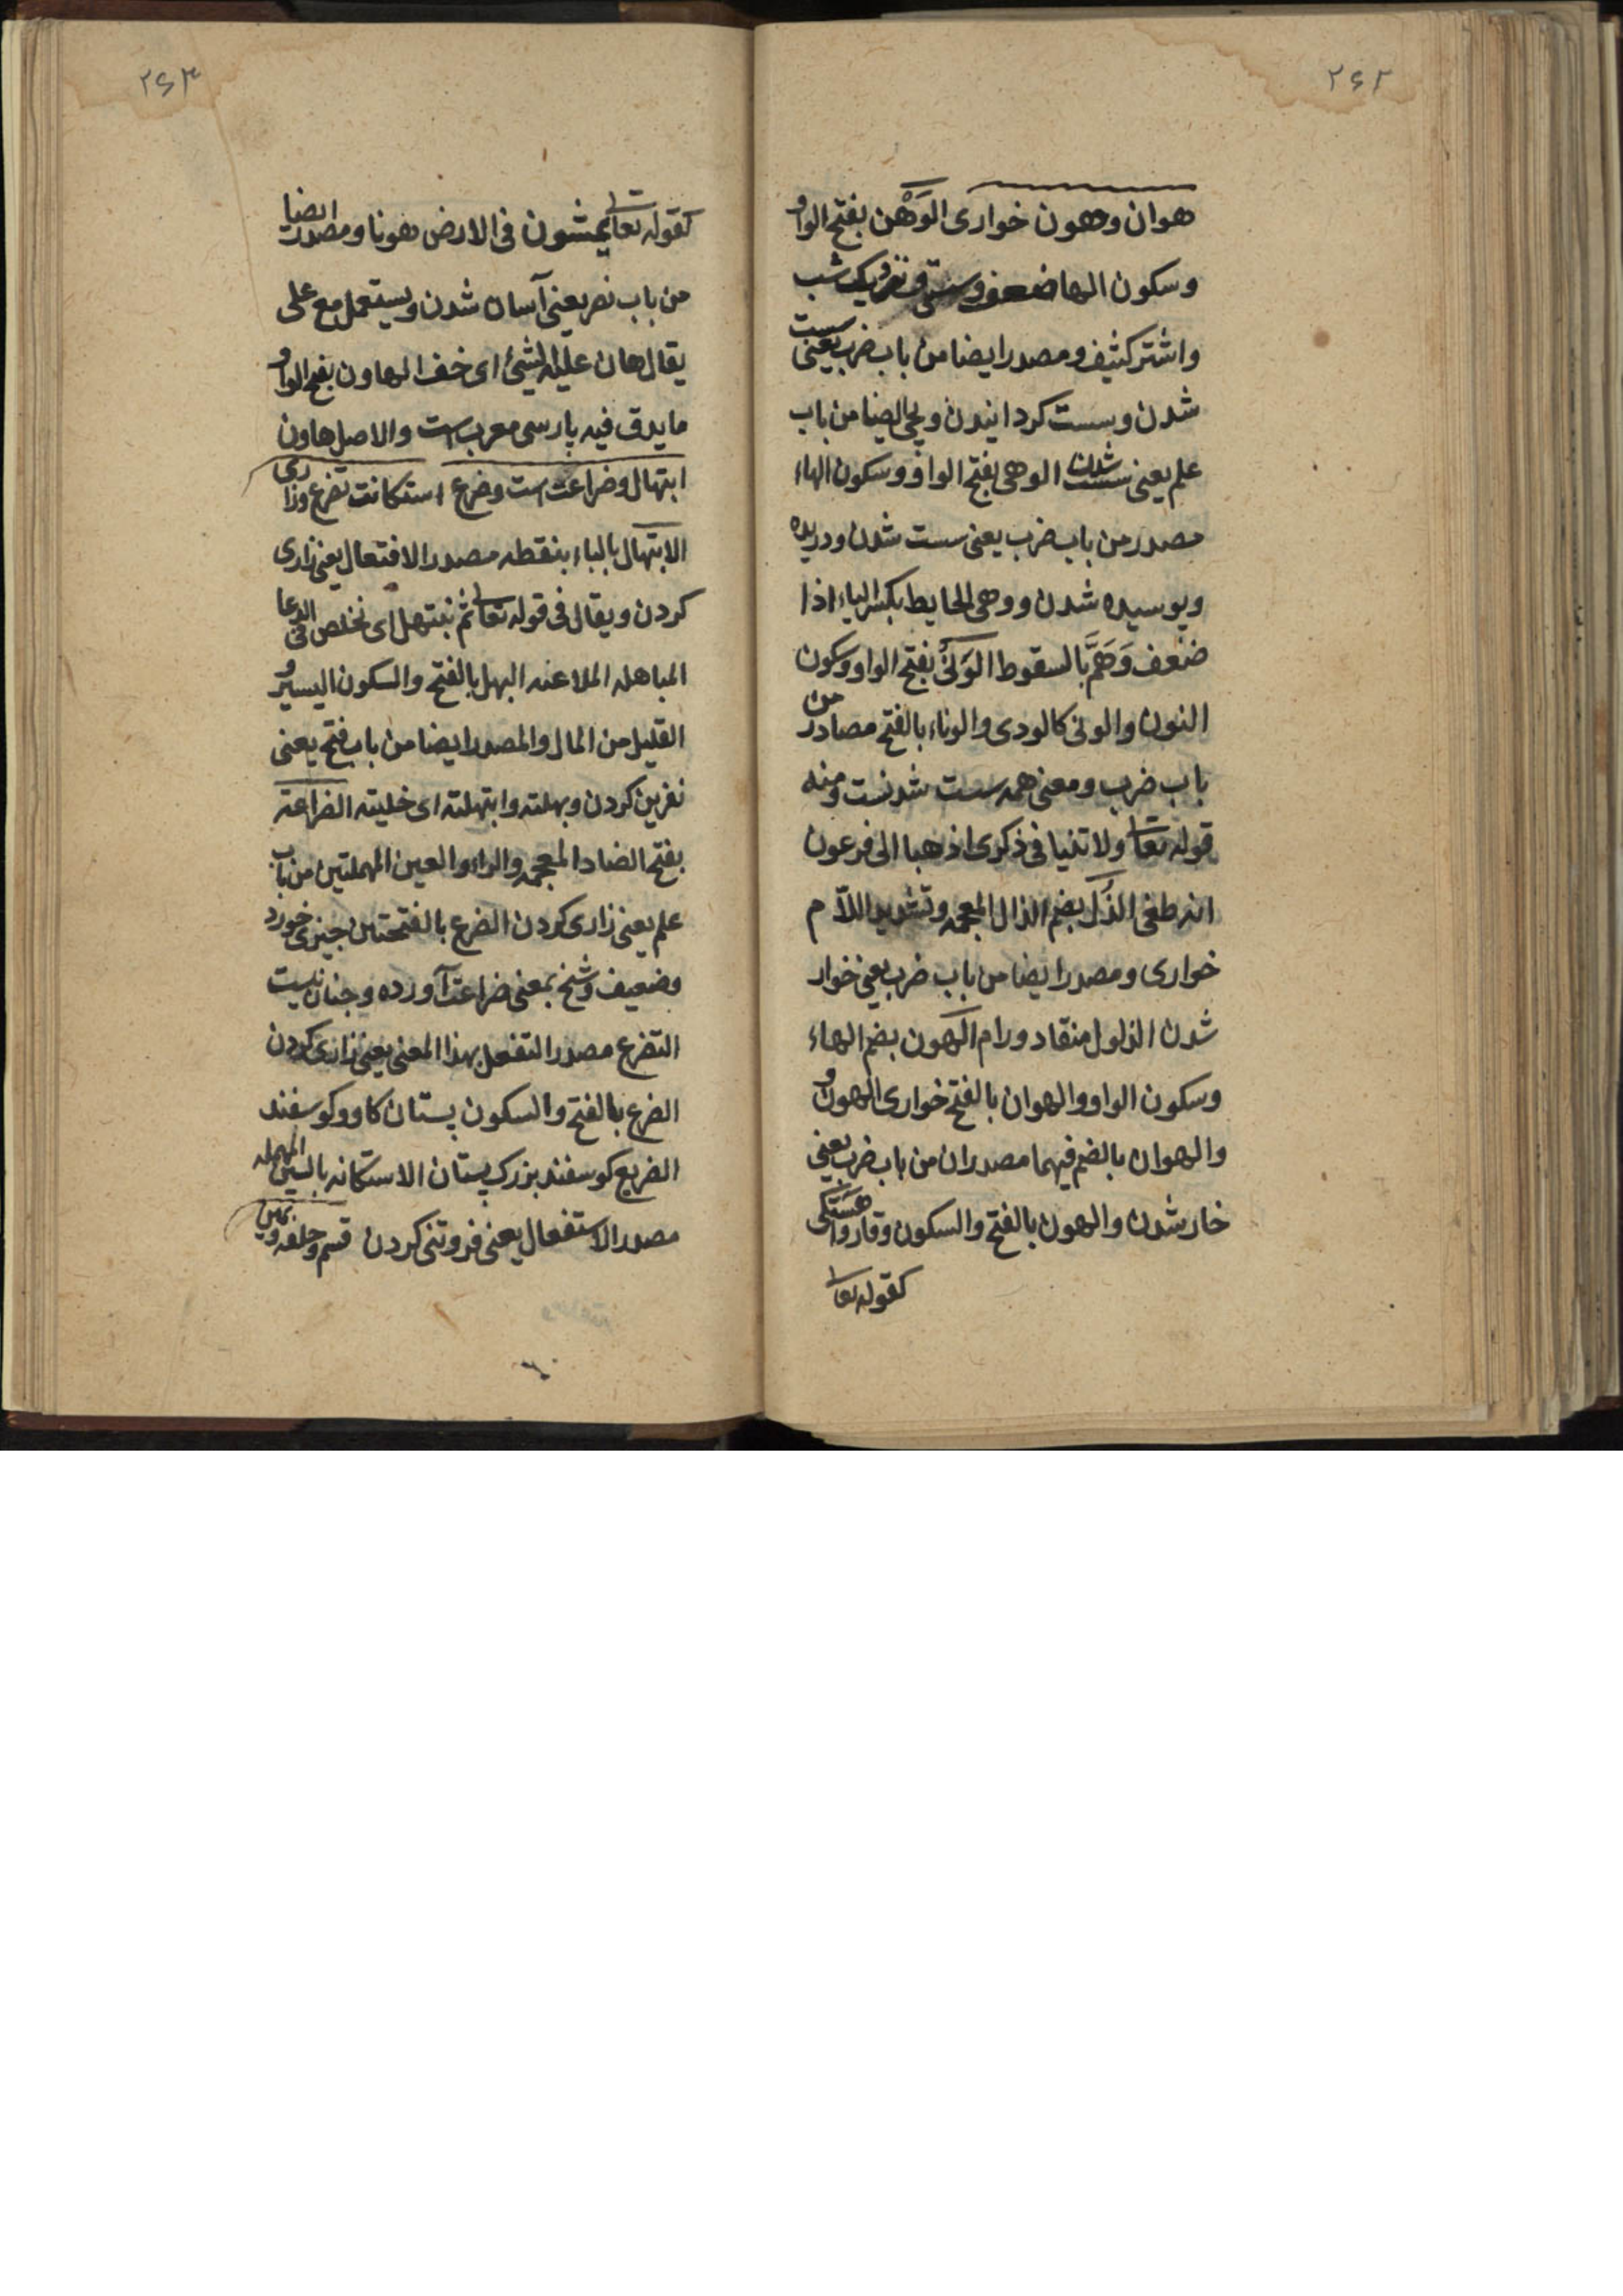 ۲۶۲
هوان و هون خواری الوَهْن بفتح الواو
و سکون الها ضعف و سستی و نزدیک شب
و اشتر کثیف و مصدر ایضا من باب ضرب یعنی سست
شدن و سست کردانیدن و یجئ ایضا من باب
علم یعنی سست شدن الوهی بفتح الواو و سکون الهاء
مصدر من باب ضرب یعنی سست شدن و دریده
و پوسیده شدن و وهی الحایط بکسر الیاء اذا
ضعف وَهَمَّ بالسقوط الوَنْی بفتح الواو و سکون
النون والونی کالودی والوناء بالفتح مصادر من
باب ضرب و معنی همه سست شدنست و منه
قوله تعا ولا تنیا فی ذکری اذهبا الی فرعون
انه طغی الذُل بضم الذال المعجمه و تشدید اللام
خواری و مصدر ایضا من باب ضرب یعنی خوار
شدن الذلول منقاد و رام الهون بضم الهاء
و سکون الواو والهوان بالفتح خواری الهون و
والهوان بالضم فیهما مصدران من باب ضرب یعنی
خار شدن والهون بالفتح والسکون وقار و اهستکی
کقوله تعا
۲۶۳
کقوله تعا یمشون فی الارض هونا و مصدر ایضا
من باب نصر یعنی آسان شدن و یستعمل مع علی
یقال هان علیه الشیئ ای خف الهاون بفتح الواو
ما یدق فیه پارسی معرب است والاصل هاون
ابتهال و ضراعت است و ضرع استکانت تضرع و زاری
الابتهال بالباء بنقطه مصدر الافتعال یعنی زاری
کردن و یقال فی قوله تعا ثم نبتهل ای نخلص فی الدعا
المباهله الملاعنه البهل بالفتح والسکون الیسیر و
القلیل من المال والمصدر ایضا من باب فتح یعنی
نفرین کردن و بهلته وابتهلته ای خلیته الضراعة
بفتح الضاد المعجمه والراء والعین المهملتین من باب
علم یعنی زاری کردن الضرع بالفتحتین چیزی خورد
و ضعیف و شخ بمعنی ضراعت آورده و چنان نیست
التضرع مصدر التفعل بهذا المعنی یعنی زاری کردن
الضرع بالفتح والسکون پستان کاو و کوسفند
الضریع کوسفند بزرک پستان الاستکانه بالسین المهمله
مصدر الاستفعال یعنی فروتنی کردن قسم و حلف و یمین